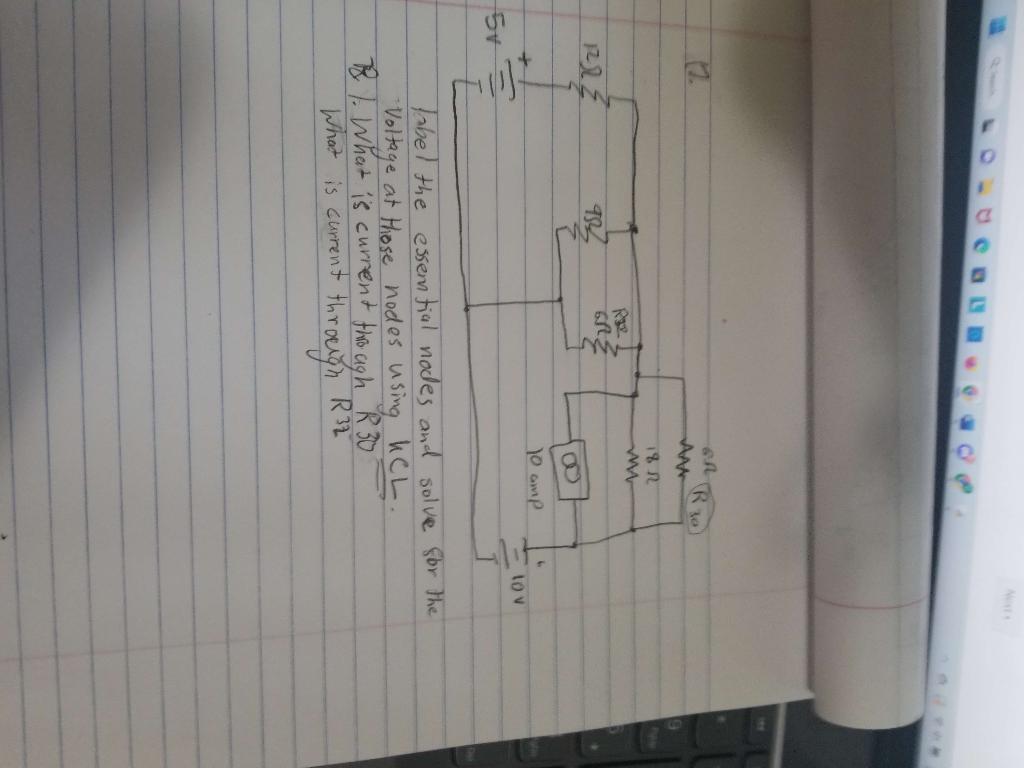 6Ω R30
18 Ω
R32
6Ω
9Ω
12Ω
10 amp
5v
+
10v
label the essential nodes and solve for the
Voltage at those nodes using KCL.
1. What is current through R30
What is current through R32